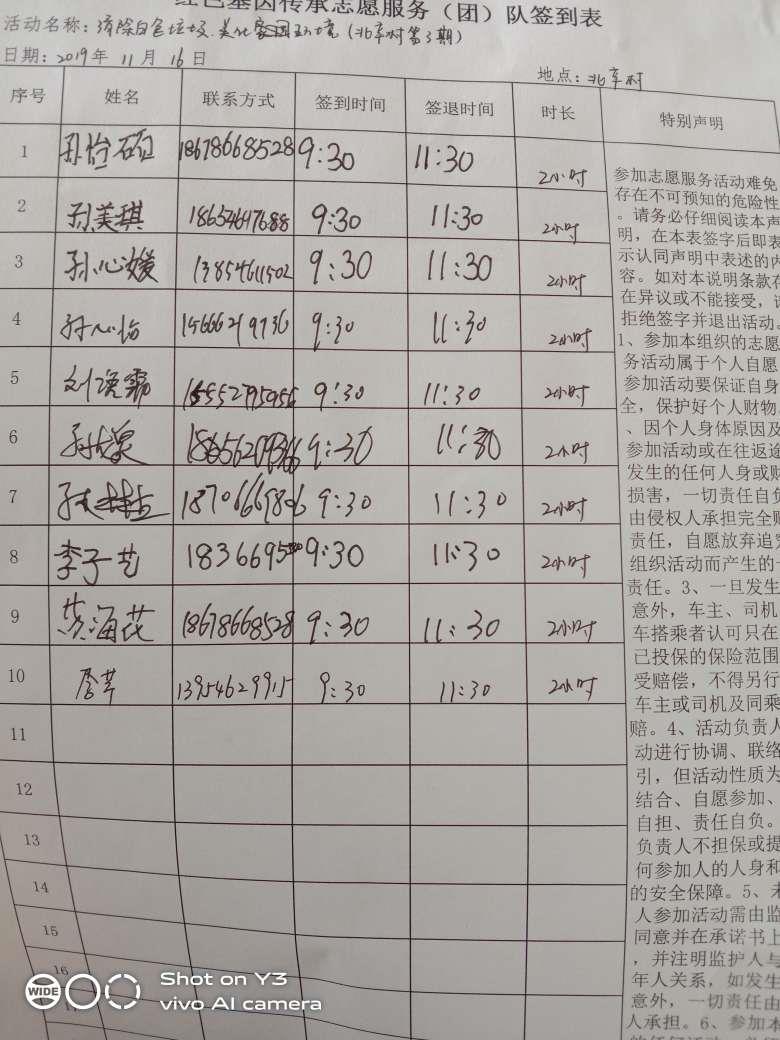 红色基因传承志愿服务（团）队签到表
活动名称：清除白色垃圾.美化家园环境（北车村第3期）
日期：2019年 11月 16日
地点：北车村
序号 姓名 联系方式 签到时间 签退时间 时长 特别声明
1 孙怡硕 18678668528 9:30 11:30 2小时
2 孙美琪 18654617688 9:30 11:30 2小时
3 孙心媛 13854611502 9:30 11:30 2小时
4 孙心怡 9:30 11:30 2小时
5 刘 9:30 11:30 2小时
6 孙 9:30 11:30 2小时
7 9:30 11:30 2小时
8 李子艺 9:30 11:30 2小时
9 黄海花 18678668528 9:30 11:30 2小时
10 13954629915 9:30 11:30 2小时
11
12
13
14
15
16
参加志愿服务活动难免
存在不可预知的危险性
。请务必仔细阅读本声
明，在本表签字后即表
示认同声明中表述的内
容。如对本说明条款存
在异议或不能接受，请
拒绝签字并退出活动。
1、参加本组织的志愿
务活动属于个人自愿
参加活动要保证自身
全，保护好个人财物
、因个人身体原因及
参加活动或在往返途
发生的任何人身或财
损害，一切责任自负
由侵权人承担完全赔
责任，自愿放弃追究
组织活动而产生的一
责任。3、一旦发生
意外，车主、司机
车搭乘者认可只在
已投保的保险范围
受赔偿，不得另行
车主或司机及同乘
赔。4、活动负责人
动进行协调、联络
引，但活动性质为
结合、自愿参加、
自担、责任自负。
负责人不担保或提
何参加人的人身和
的安全保障。5、未
人参加活动需由监
同意并在承诺书上
，并注明监护人与
年人关系，如发生
意外，一切责任由
人承担。6、参加本
WIDE
Shot on Y3
vivo AI camera